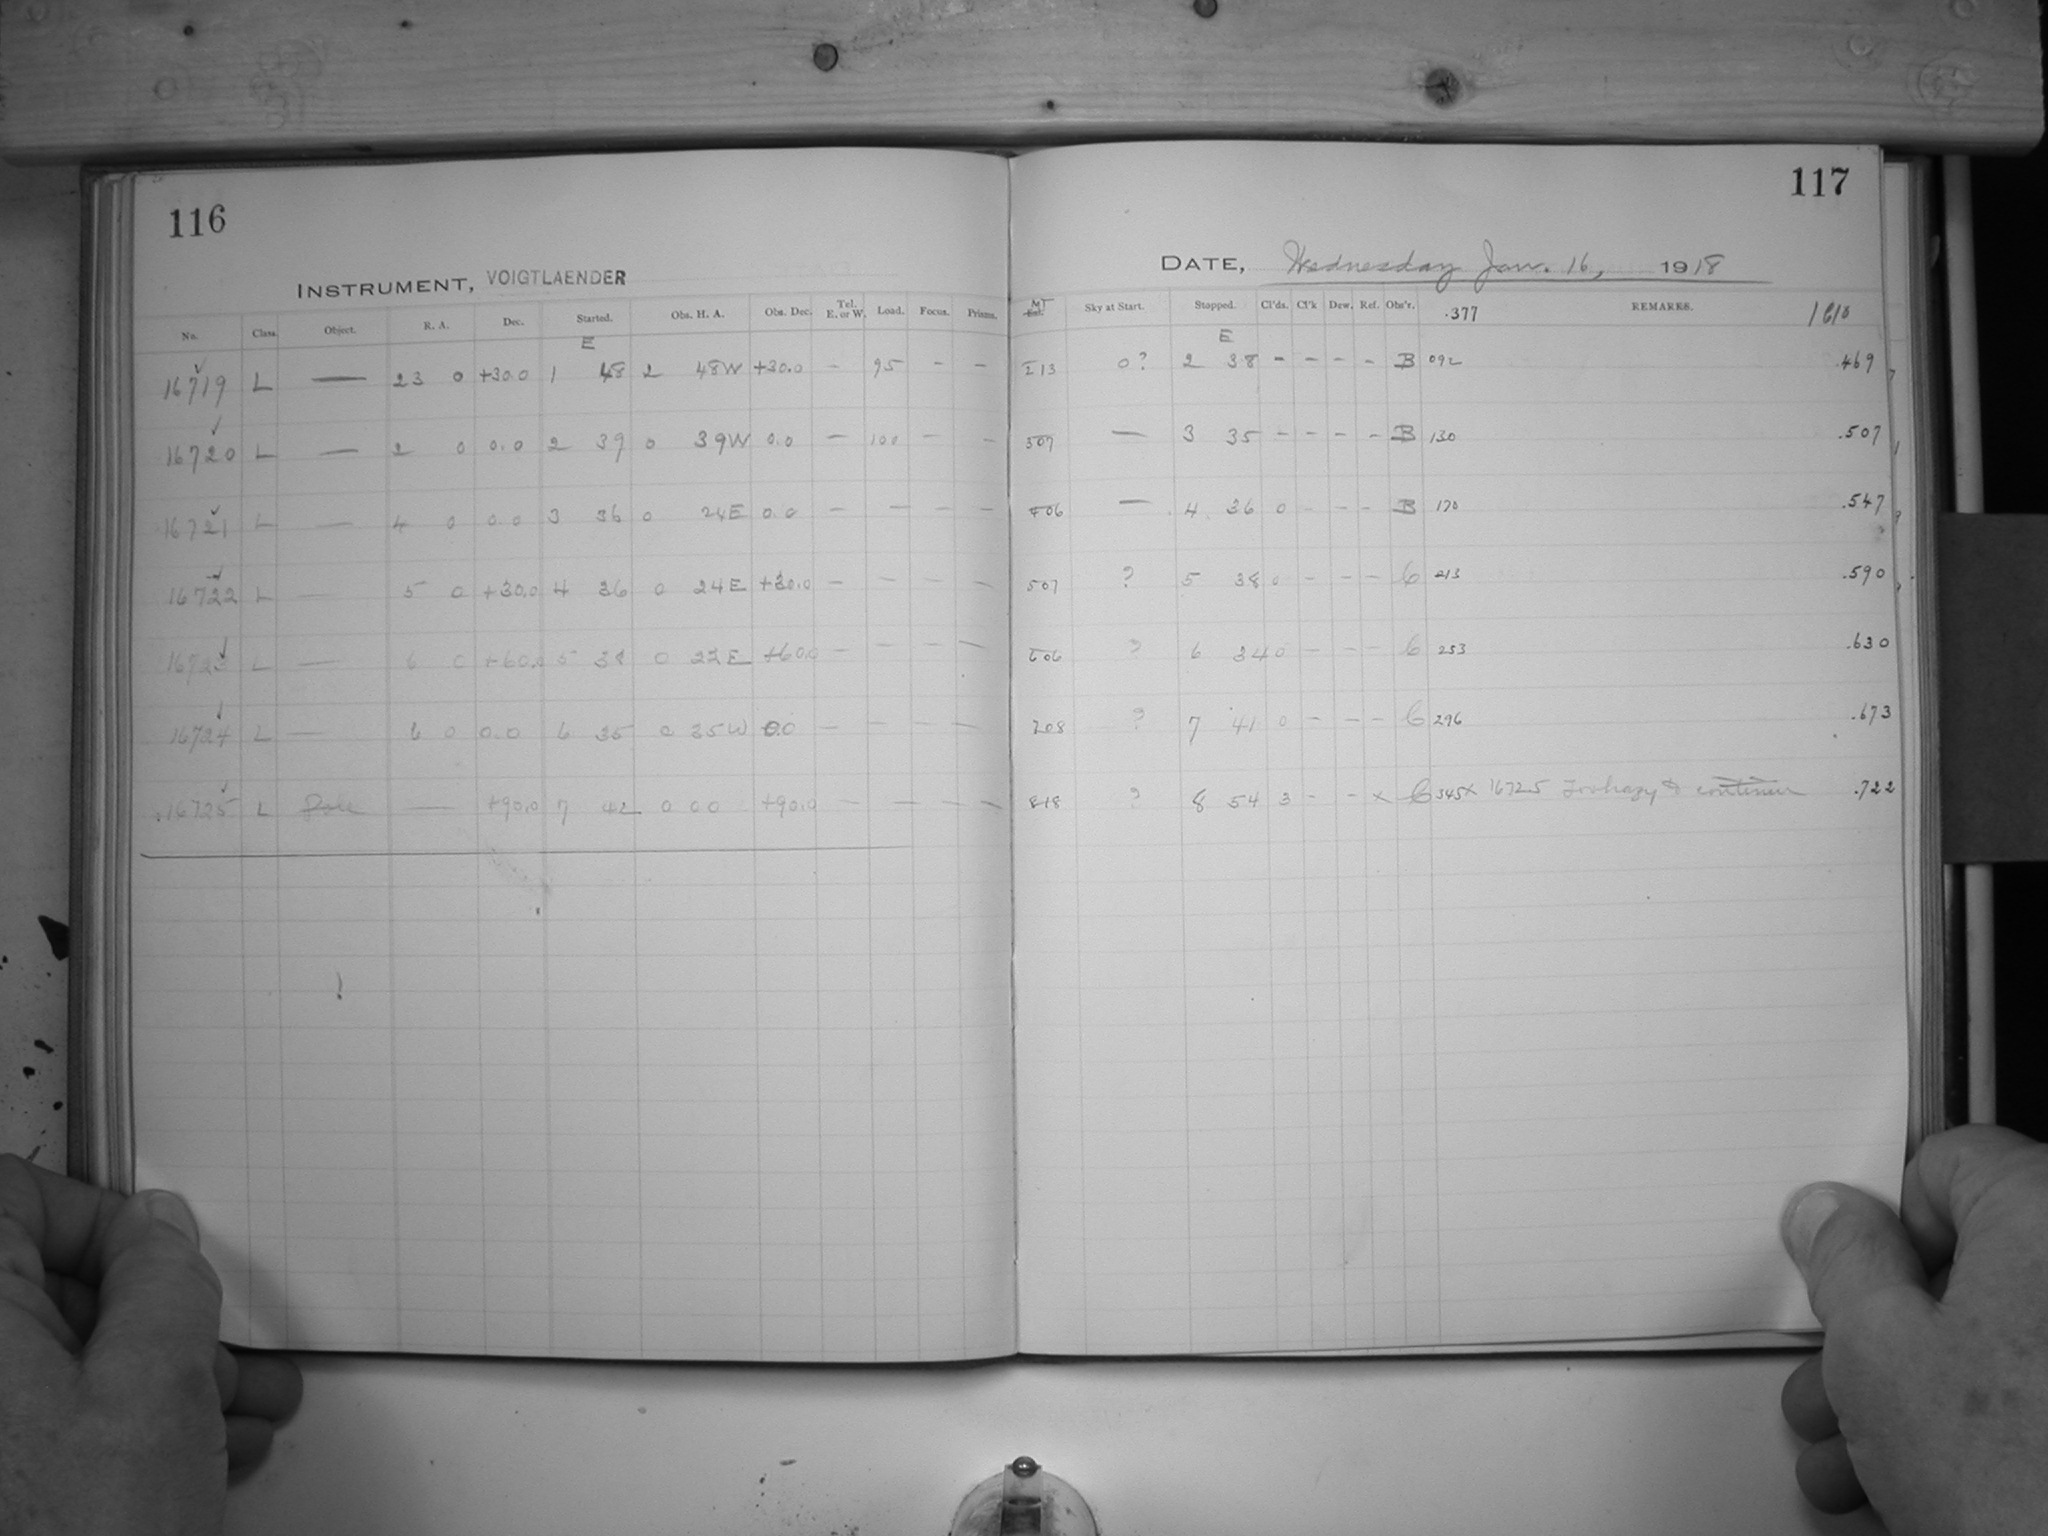 116
INSTRUMENT, VOIGTLAENDER
No. Class. Object. R. A. Dec. Started. Obs. H. A. Obs. Dec. Tel. E. or W. Load. Focus. Prisms.
E
16719 L — 23 0 +30.0 1 48 2 48W +30.0 - 95 - -
16720 L — 2 0 0.0 2 39 0 39W 0.0 - 100 - -
16721 L — 4 0 0.0 3 36 0 24E 0.0 - - - -
16722 L — 5 0 +30.0 4 36 0 24E +30.0 - - - -
16723 L — 6 0 +60.0 5 38 0 22E +60.0 - - - -
16724 L — 6 0 0.0 6 35 0 35W 0.0 - - - -
16725 L Pole — +90.0 7 42 0 0 0 +90.0 - - - -
117
DATE, Wednesday Jan. 16, 1918
MT Sky at Start. Stopped. Cl'ds. Cl'k Dew. Ref. Obs'r. .377 REMARKS.
E
213 0? 2 38 - - - - B 092 .469
507 — 3 35 - - - - B 130 .507
— 4 36 0 - - - B 170 .547
507 ? 5 38 0 - - - C 213 .590
606 ? 6 34 0 - - - C 253 .630
708 ? 7 41 0 - - - C 296 .673
818 ? 8 54 3 - - x C 345 x 16725 Too hazy to continue .722